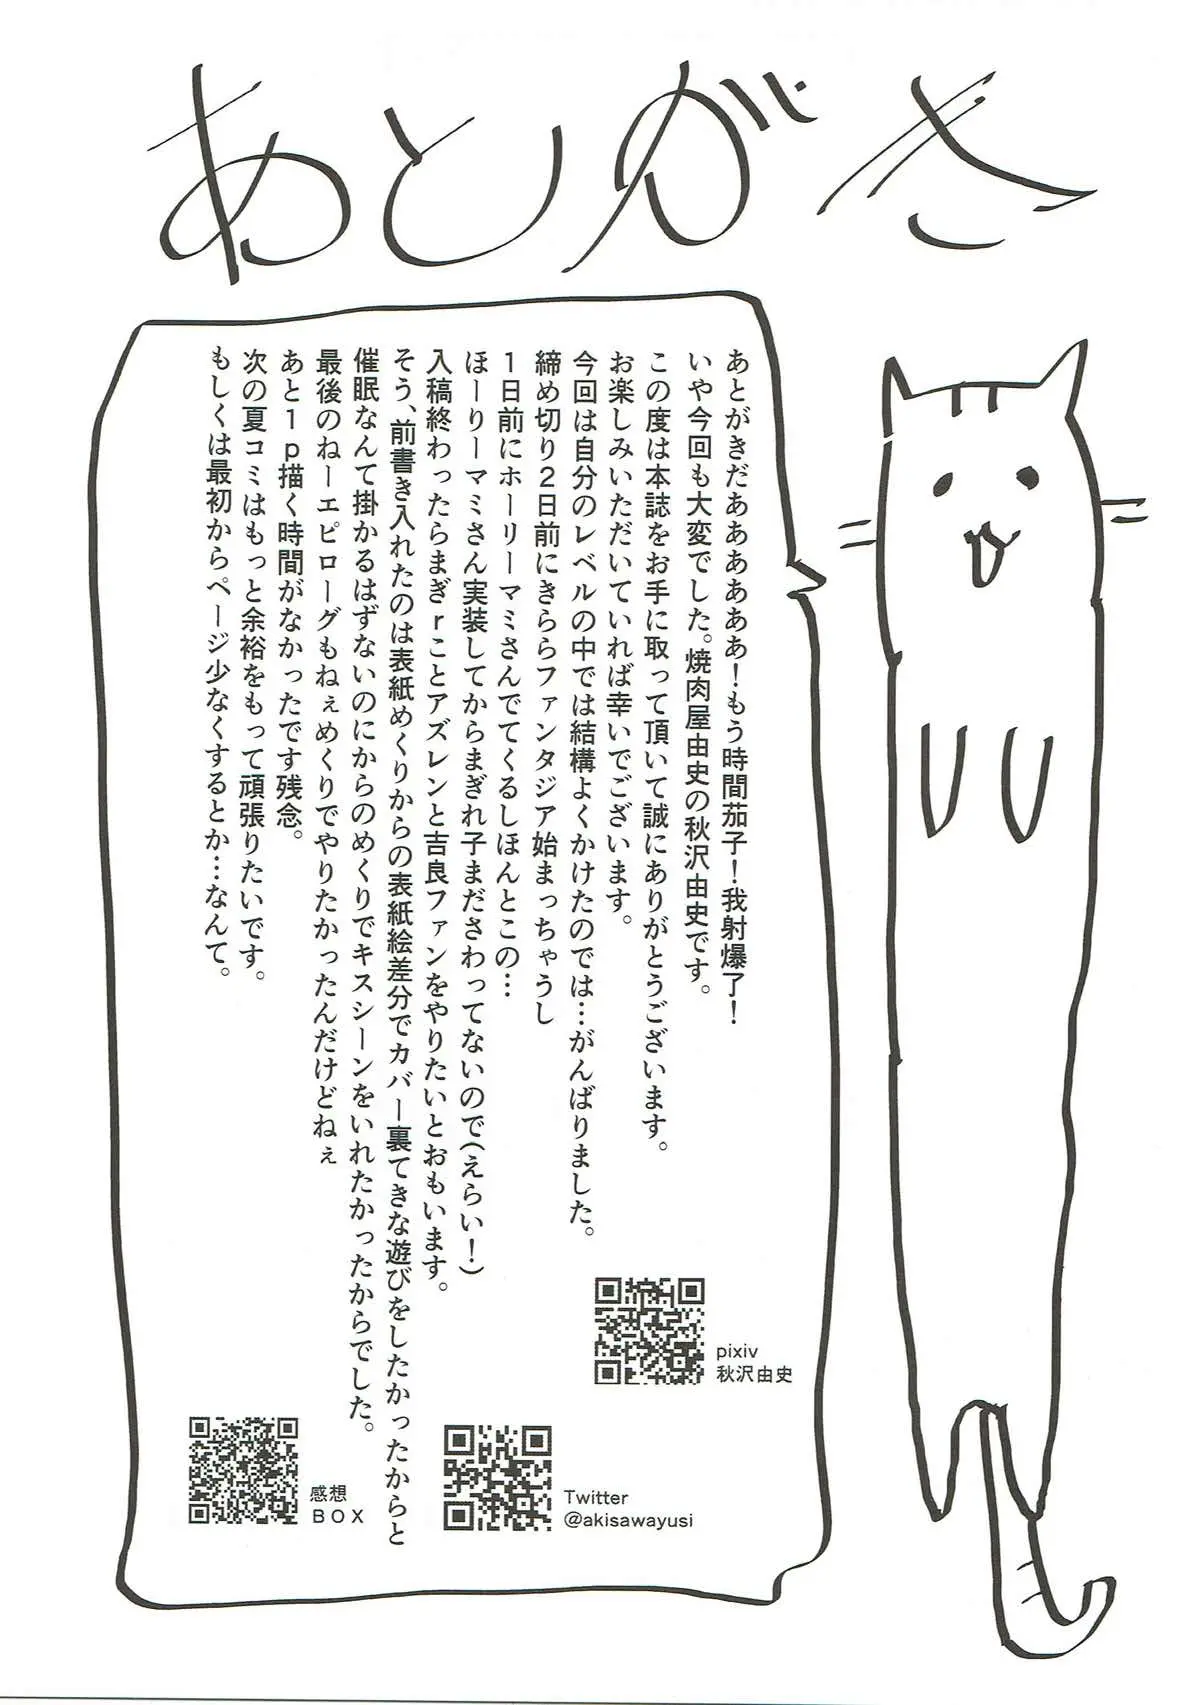 あとがき
あとがきだああああああ!もう時間茄子!我射爆了!
いや今回も大変でした。焼肉屋由史の秋沢由史です。
この度は本誌をお手に取って頂いて誠にありがとうございます。
お楽しみいただいていれば幸いでございます。
今回は自分のレベルの中では結構よくかけたのでは…がんばりました。
締め切り2日前にきららファンタジア始まっちゃうし
1日前にホーリーマミさんでてくるしほんとこの…
ほーりーマミさん実装してからまぎれ子まださわってないので(えらい!)
入稿終わったらまぎrことアズレンと吉良ファンをやりたいとおもいます。
そう、前書き入れたのは表紙めくりからの表紙絵差分でカバー裏てきな遊びをしたかったからと
催眠なんて掛かるはずないのにからのめくりでキスシーンをいれたかったからでした。
最後のねーエピローグもねぇめくりでやりたかったんだけどねぇ
あと1p描く時間がなかったです残念。
次の夏コミはもっと余裕をもって頑張りたいです。
もしくは最初からページ少なくするとか…なんて。
pixiv
秋沢由史
Twitter
@akisawayusi
感想
BOX